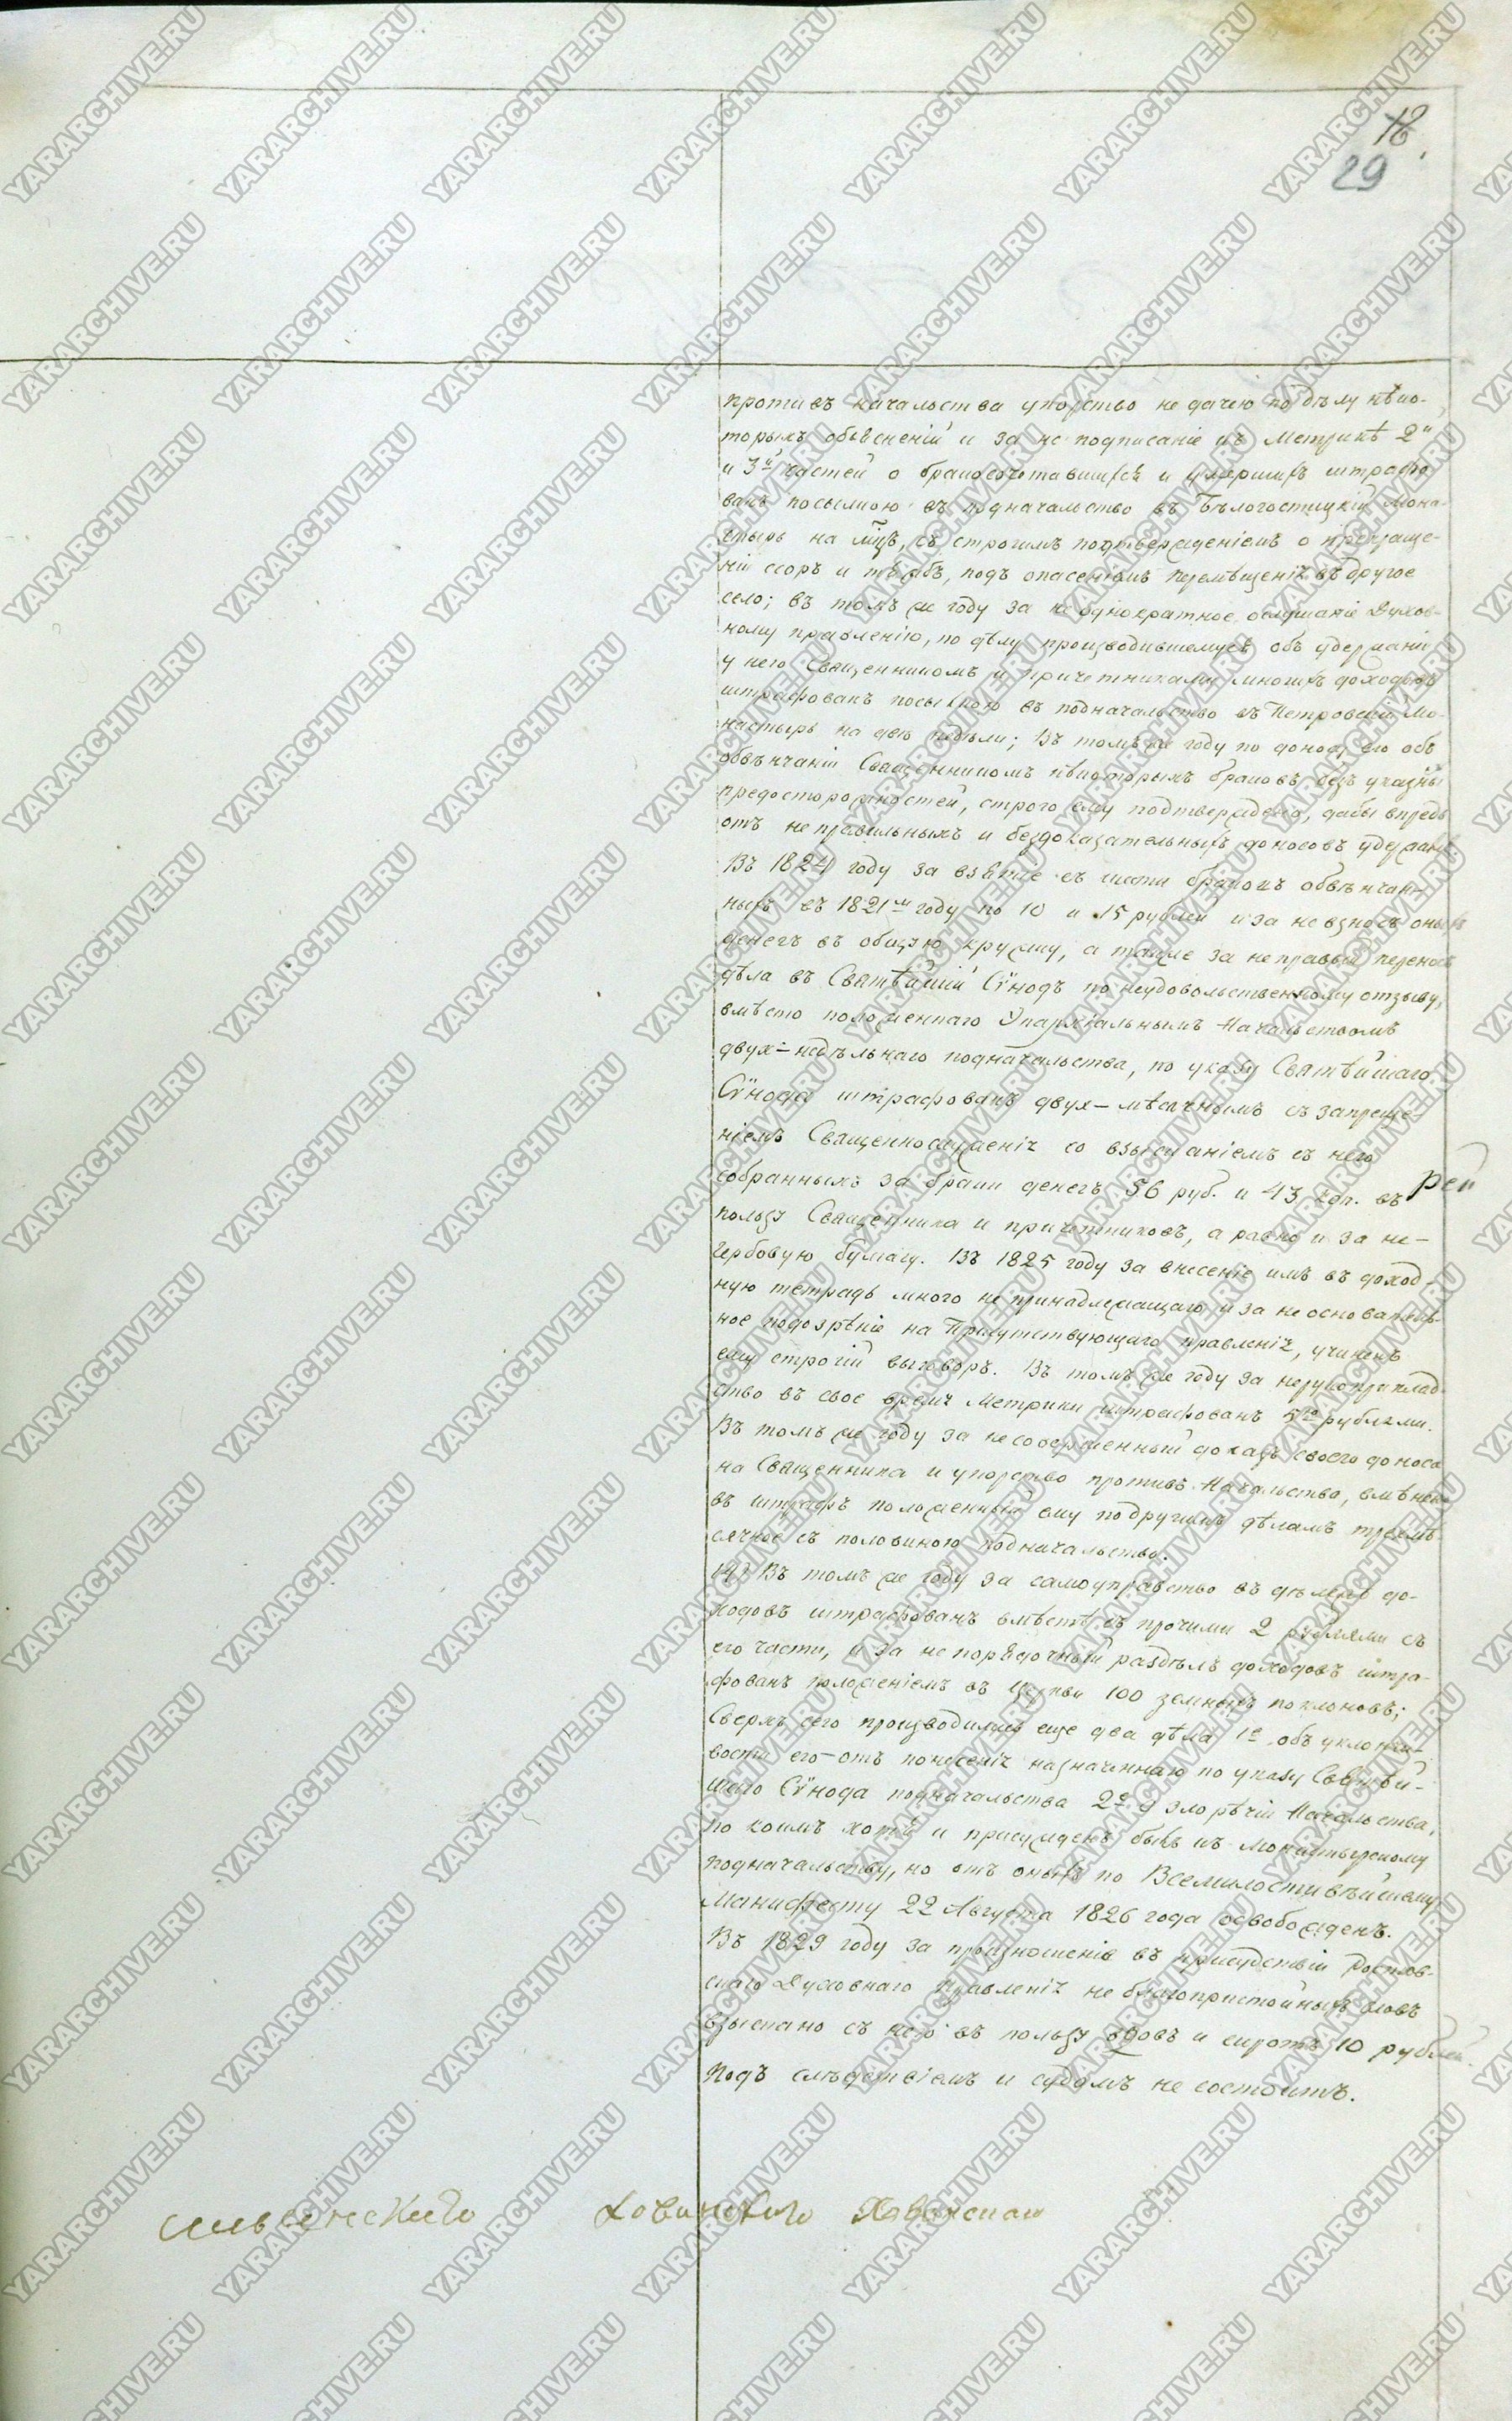 18.
29
противъ начальства упорство не дачею по дѣлу нѣко-
торыхъ объясненій и за не подписаніе въ Метрикѣ 2й
и 3й частей о бракосочетавшихся и умершихъ штрафо
ванъ посылкою въ подначальство въ Бѣлогостицкій Мона-
стырь на мцъ, съ строгимъ подтвержденіемъ о прекраще-
ніи ссоръ и тяжбъ, подъ опасеніемъ перемѣщенія въ другое
село; въ томъ же году за неоднократное ослушаніе Духов-
ному правленію, по дѣлу производившемуся объ удержаніи
у него Священникомъ и причетниками многихъ доходовъ
штрафованъ посылкою въ подначальство въ Петровскій Мо-
настырь на двѣ недѣли; Въ томъ же году по доносу его объ
обвѣнчаніи Священникомъ нѣкоторыхъ браковъ безъ указны
предосторожностей, строго ему подтверждено, дабы впредь
отъ не правильныхъ и бездоказательныхъ доносовъ удержан
Въ 1824 году за взятіе съ шести браковъ обвѣнчан-
ныхъ въ 1821м году по 10 и 15 рублей и за не взносъ оныхъ
денегъ въ общую кружку, а также за неправый переносъ
дѣла въ Святѣйшій Сѵнодъ по неудовольственному отзыву,
вмѣсто положеннаго Эпархіальнымъ Начальствомъ
двух-недѣльнаго подначальства, по указу Святѣйшаго
Сѵнода штрафованъ двух-мѣсячнымъ съ запреще-
ніемъ Священнослуженія со взысканіемъ съ него
собранныхъ за браки денегъ 56 руб. и 43 коп. въ
пользу Священника и причетниковъ, а равно и за не-
гербовую бумагу. Въ 1825 году за внесеніе имъ въ доход-
ную тетрадь много не принадлежащаго и за не основатель-
ное подозрѣніе на Присутствующаго правленія, учиненъ
ему строгій выговоръ. Въ томъ же году за нерукоприклад-
ство въ свое время Метрики штрафованъ 5ю рублями.
Въ томъ же году за несовершенный доказъ своего доноса
на Священника и упорство противъ Начальства, вмѣнен
въ штрафъ положенный ему по другимъ дѣламъ трехмѣ
сячное съ половиною подначальство.
Въ томъ же году за самоуправство въ дѣлежѣ до-
ходовъ штрафованъ вмѣстѣ съ прочими 2 рублями съ
его части, и за не порядочный раздѣлъ доходовъ штра-
фованъ положеніемъ въ Церкви 100 земныхъ поклоновъ;
Сверхъ сего производились еще два дѣла 1е объ уклончи-
вости его-отъ понесенія назначеннаго по указу Святѣй-
шаго Сѵнода подначальства 2е о злорѣчіи Начальства,
по коимъ хотя и присужденъ былъ къ монастырскому
подначальству, но отъ оныхъ по Всемилостивѣйшему
Манифесту 22 Августа 1826 года освобожденъ.
Въ 1829 году за произношеніе въ присудствіи Ростов-
скаго Духовнаго Правленія не благопристойныхъ словъ
взыскано съ него въ пользу вдовъ и сиротъ 10 рублей.
Подъ слѣдствіемъ и судомъ не состоитъ.